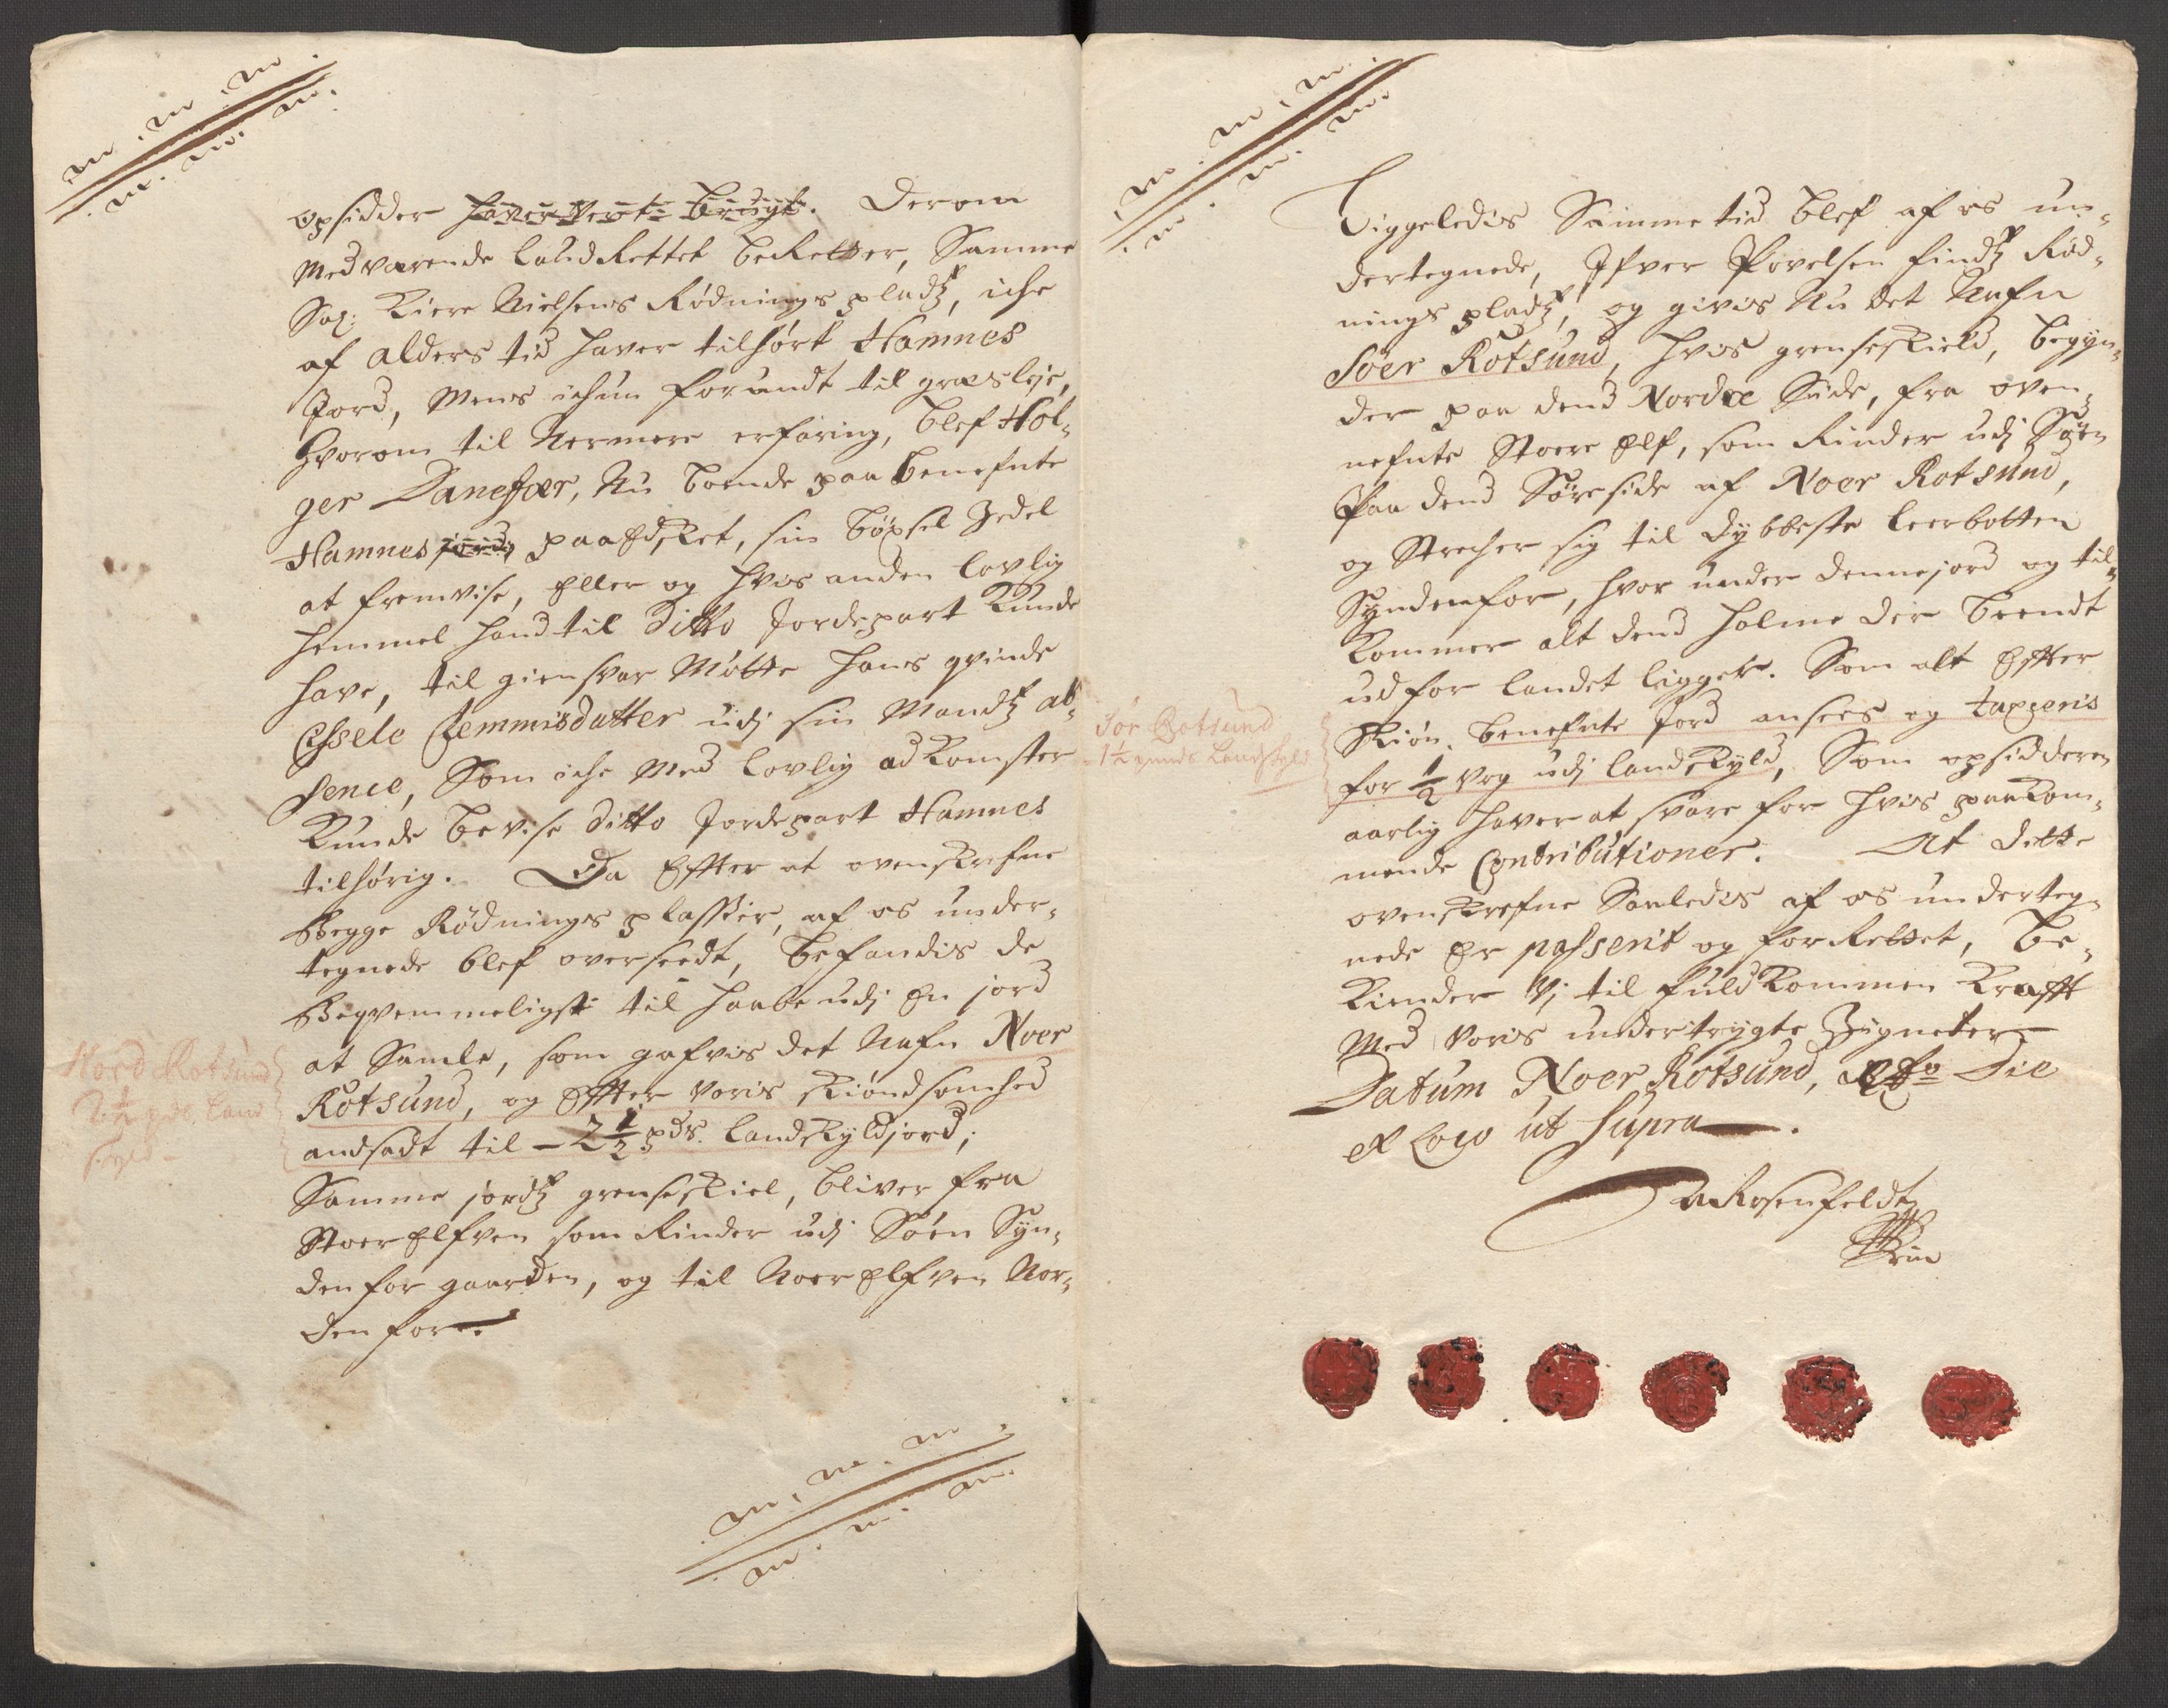 m . m . m .
. m . m . m .
opsidder haver verit brugt. Derom
Medværende LaudRettet beRetter, Samme
Sal: Kiere Nielsens Rødnings pladtz, iche
af alders tid haver tilhørt Hamnes
Jord, Mens ichun forundt til græsleje,
Hvorom til Nermere erfaring, blef Hol-
ger Danefær, Nu boende paa benefnte
Hamnes jord, paaEdsket, sin bøxsel Zedel
at fremvise, Eller og hvis anden lovlig
hemmel hand til Ditto Jordepart Kunde
have, til giensvar Møtte hans qvinde
Clemmisdatter udj sin Mandtz ab-
sence, Som iche Med lovlig adkomster
Kunde bevise Ditto Jordepart Hamnes
tilhørig. Da Effter at ovenskrefne
Begge Rødnings plasser, af os under-
tegnede blef overseedt, befandis de
Beqvemmeligst til haabe udj En jord
at Samle, som gafvis det Nafn Noer
Rotsund, og Effter voris skiøndsomhed
andsadt til - 2 1/2 pds. Landskyldjord;
Samme jordtz grenseskiel, bliver fra
StoerElfven som Rinder udj Søen Syn-
den for gaarden, og til NoerElfven Nor-
den for
Nord Rotsund
2 1/2 pds. Land
skyld
m . m . m .
. m . m . m .
m . m . m .
. m . m . m .
Liggeledis Samme tid blef af os un-
dertegnede, Ifver Povelsen findtz Rød-
nings pladtz, og givis Nu det Nafn
Söer Rotsund, hvis grenseskield, begyn-
der paa dend Nordre Side, fra oven-
nefnte Stoere Elf, som Rinder udj Søen
Paa dend Søreside af Noer Rotsund,
og Strecher sig til Dybbeste leerbotten
Syndenfor, hvor under dennejord og til-
Kommer alt dend holme der beendt
udfor landet ligger. Som alt Effter
Skiøn, benefnte Jord ansees og taxeris
for 1/2 vog udj landskyld, Som opsidderen
aarlig haver at svare for hvis paakom-
mende Contributioner. At dette
ovenskrefne Saaledes af os underteg-
nede Er passerit og forRettet, be-
Kiender Vj til fuldkommen Krafft
Med voris undertrygte Zigneter
Datum Noer Rotsund, Die
et Loco ut Supra .
Rosenfeldt
Sör Rotsund
1 1/2 punds Landskyld